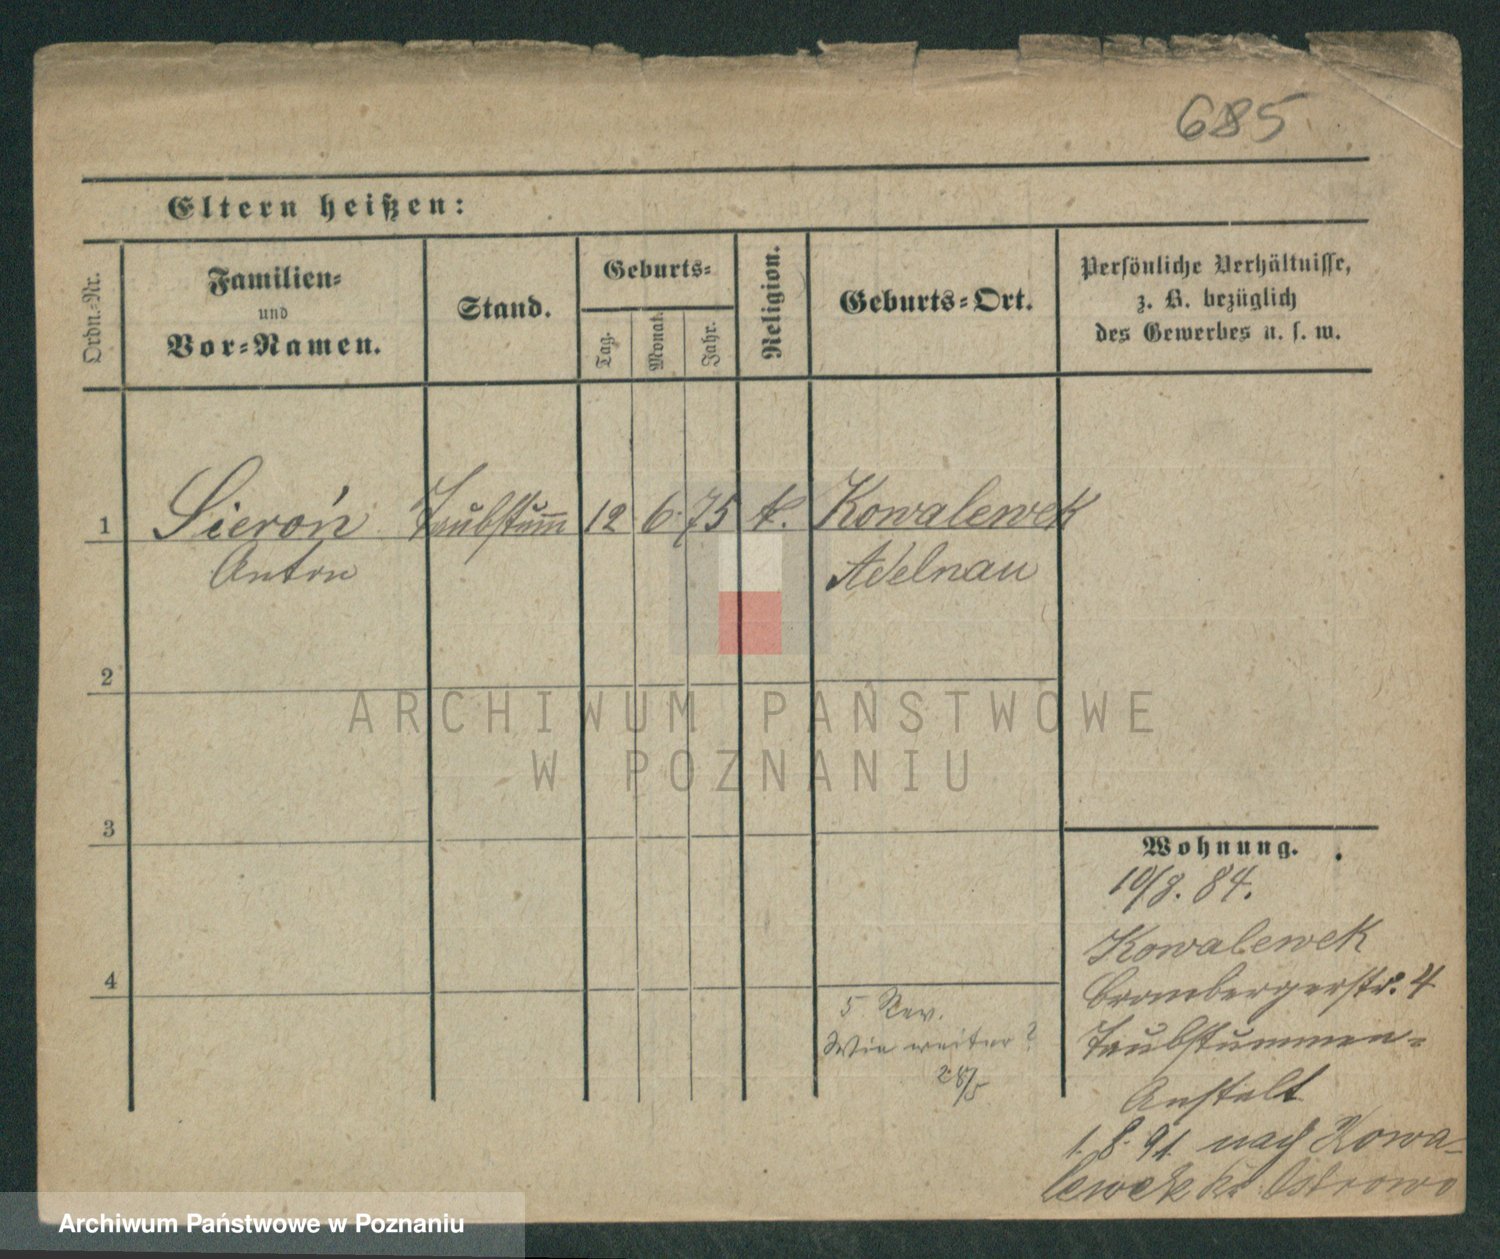 685
Eltern heißen:
Ordn.-Nr.
Familien-
und
Vor-Namen.
Stand.
Geburts-
Tag.
Monat.
Jahr.
Religion.
Geburts-Ort.
Persönliche Verhältnisse,
z. B. bezüglich
des Gewerbes u. s. w.
1 Sieroń Taubstum̅ 12 6. 75 k. Kowalewek
Anton Adelnau
2
ARCHIWUM PAŃSTWOWE
W POZNANIU
3
Wohnung.
10/8. 84.
Kowalewek
Brombergerstr. 4
Taubstummen-
Anstalt
1.8.91. nach Kowa-
lewek Kr Ostrowo
4
5 Rev.
Wie weiter?
28/5
Archiwum Państwowe w Poznaniu